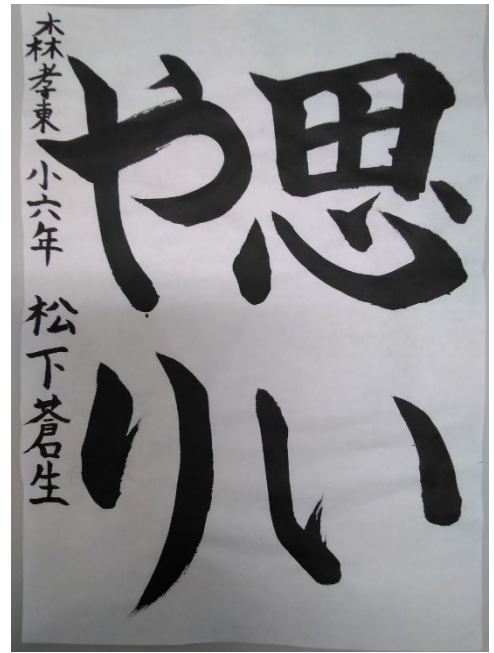 思い
やり
森孝東 小六年 松下蒼生